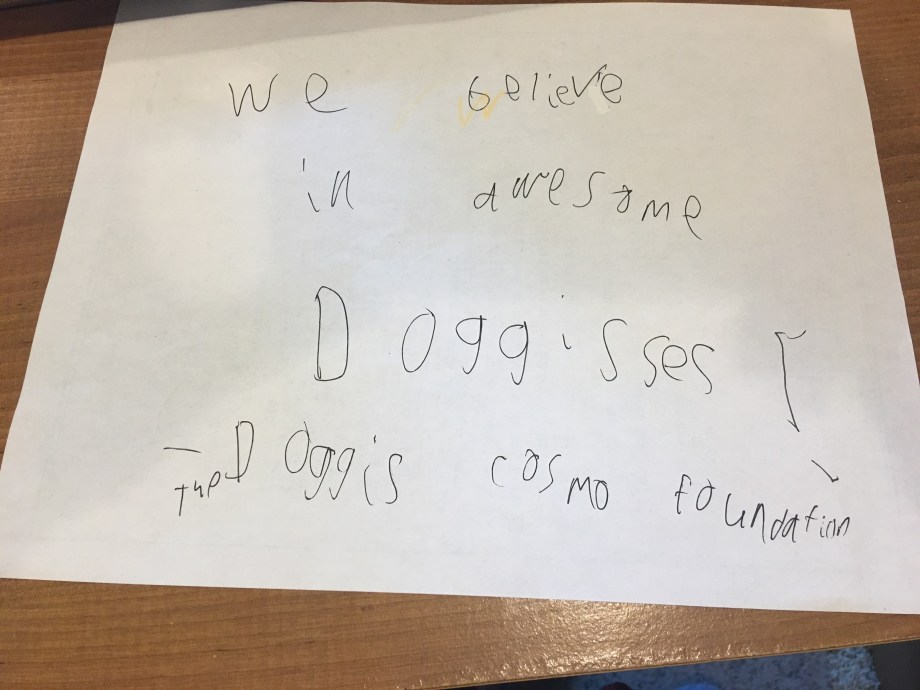 we believe
in awesome
Doggisses!
- The Doggis cosmo foundation